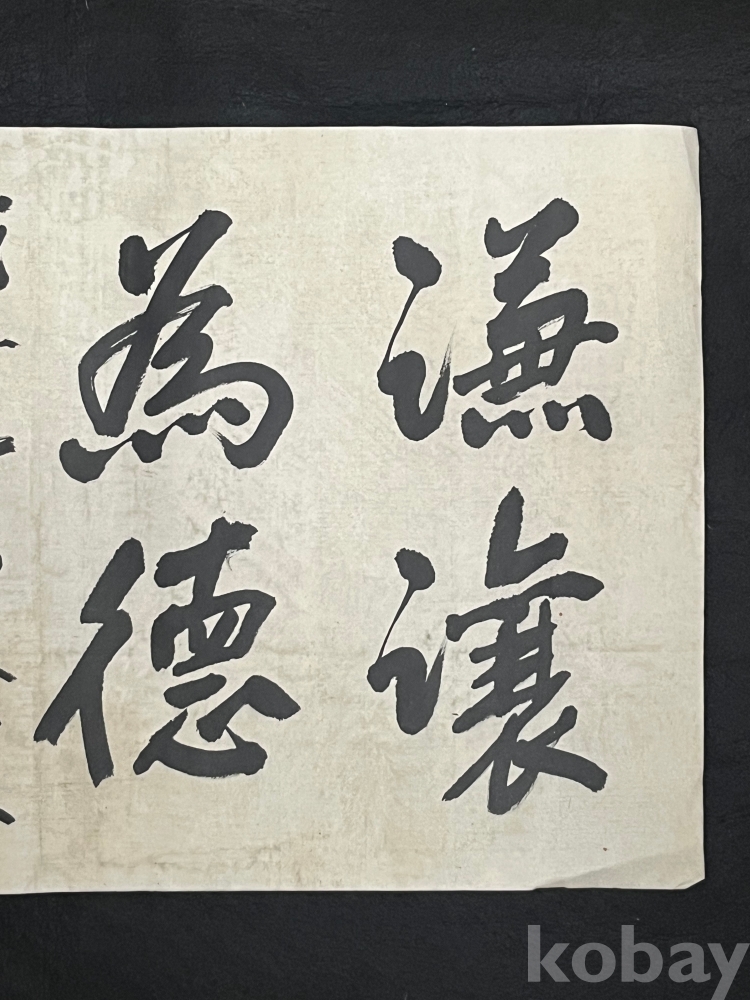 謙讓
為德
kobay